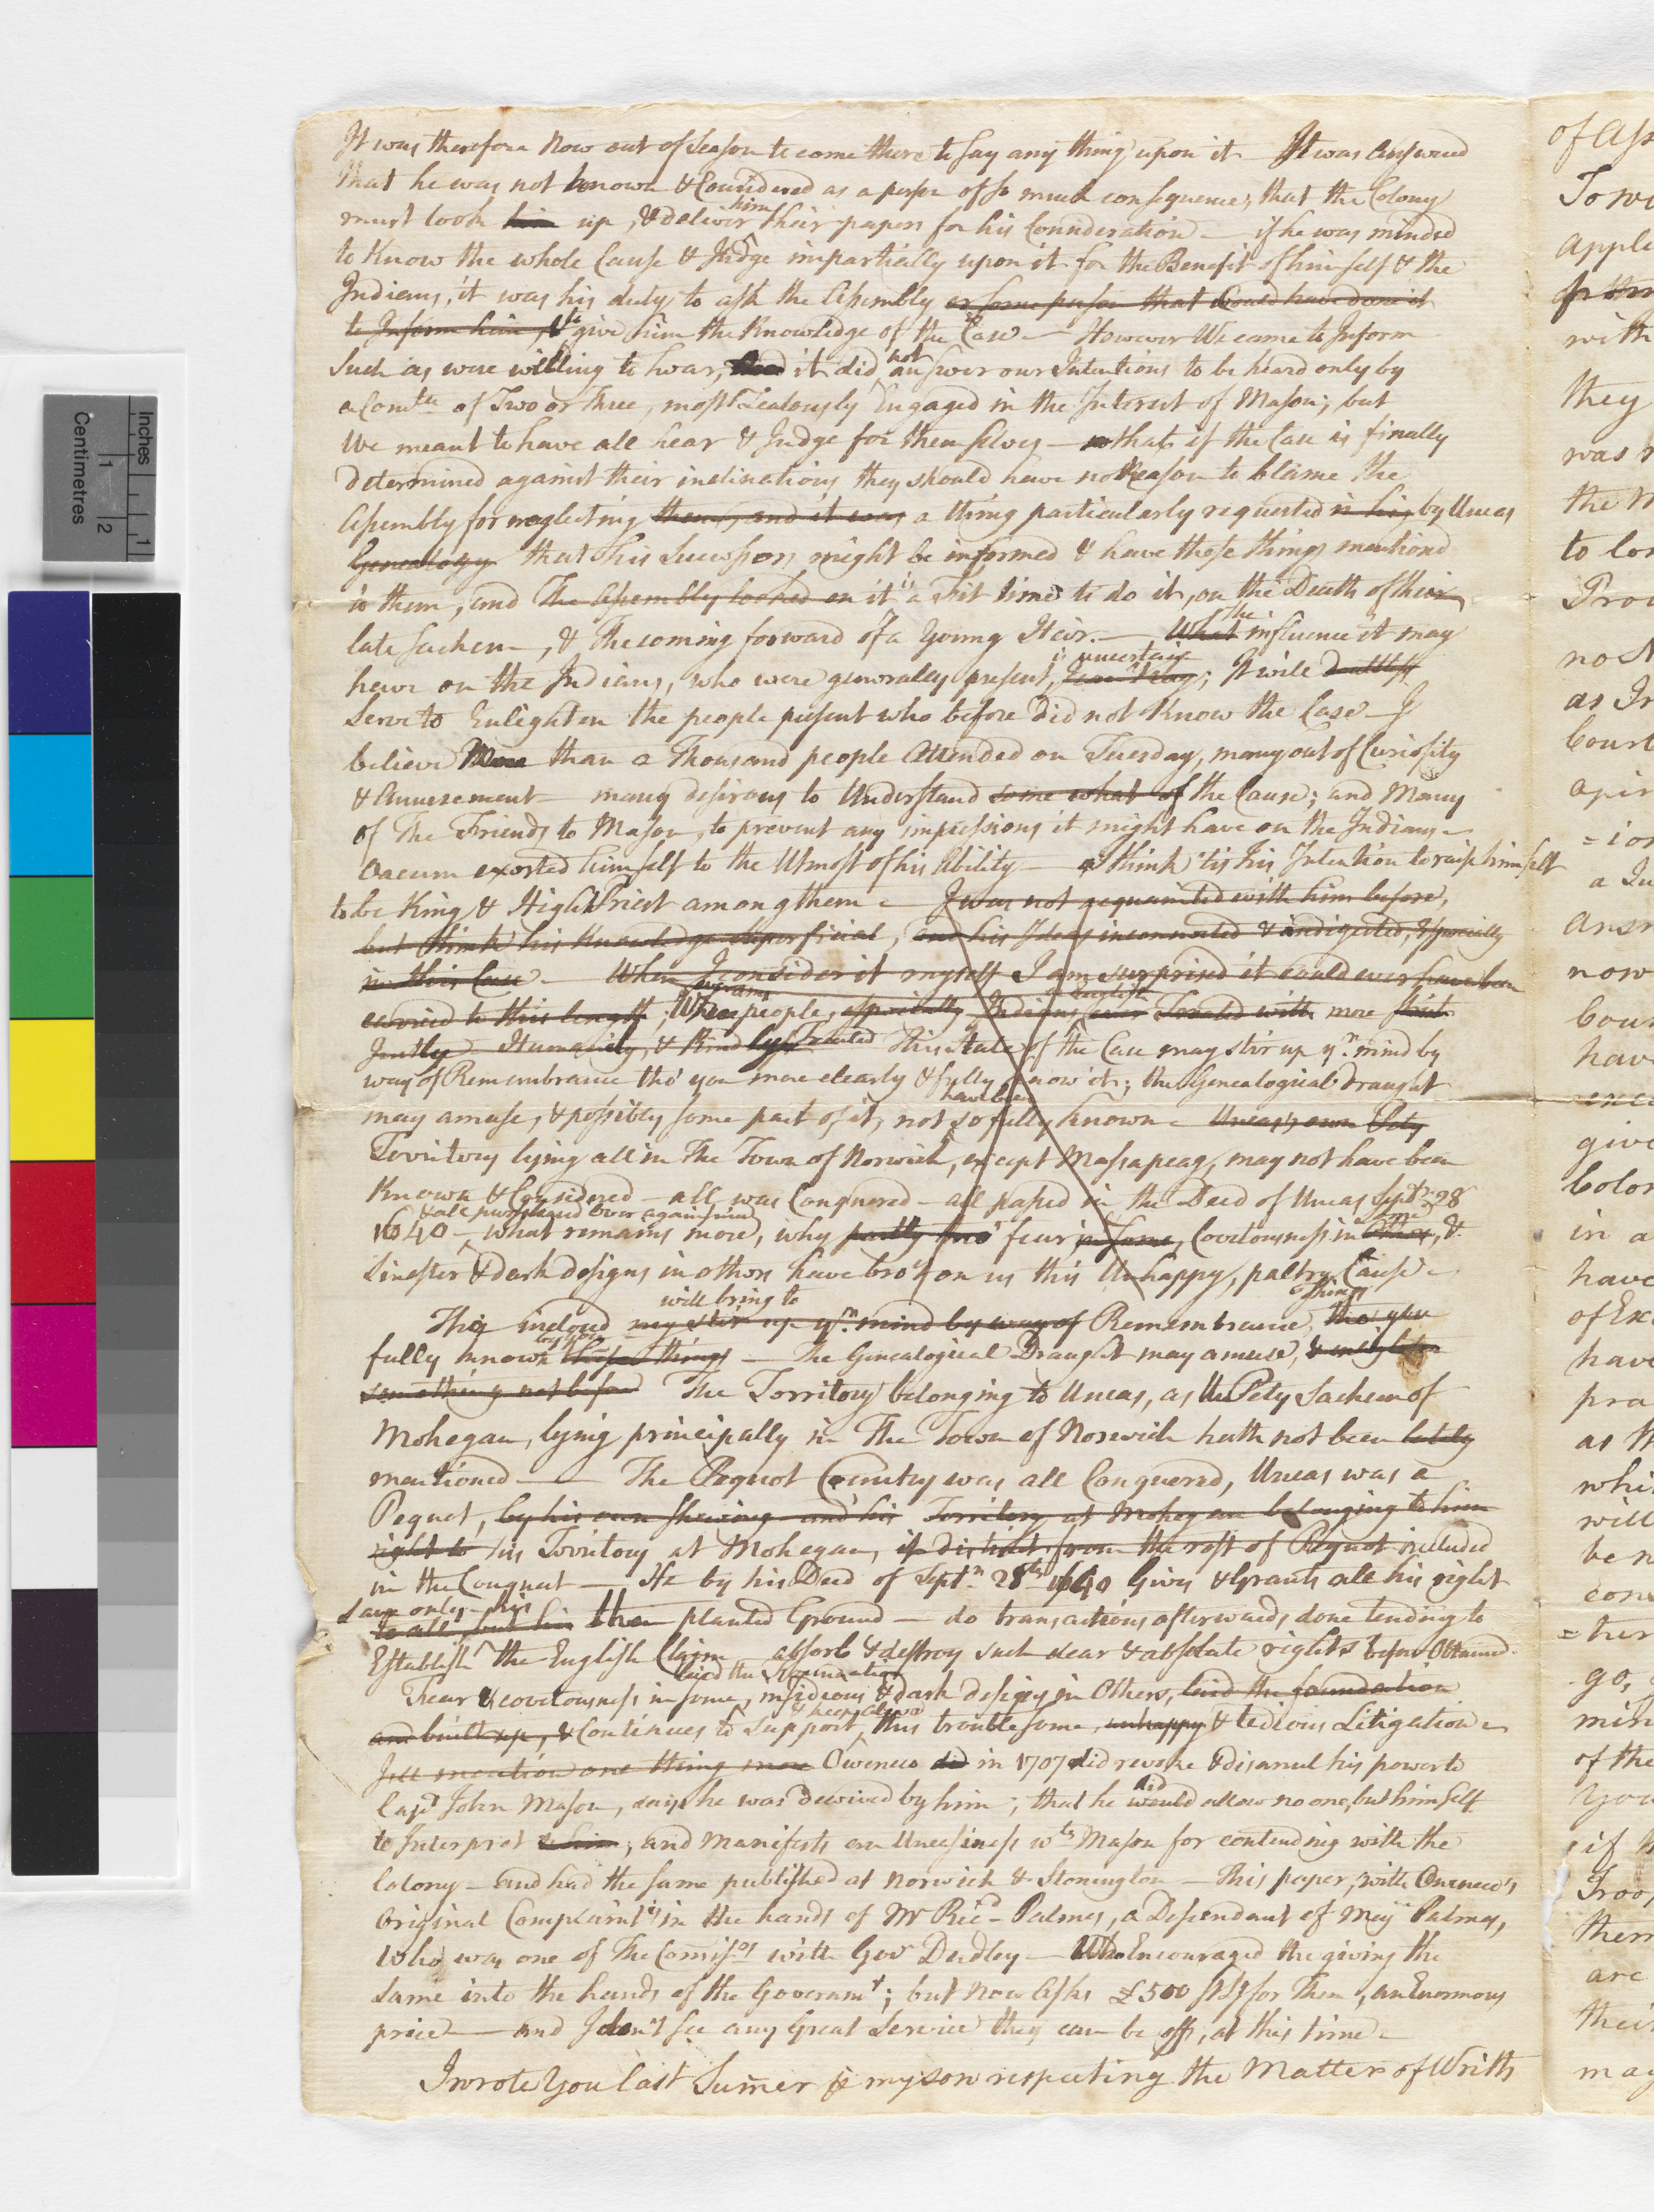 It was therefore Now out of Season to come there to say any thing upon it — It was answered
that he was not known & Considered as a person of so much consequence, that the Colony
must look him up, & deliver him their papers for his Consideration — if he was minded
to Know the whole Cause & Judge impartially upon it for the Benefit of himself & the
Indians, it was his duty to ask the Assembly or some person that Could have done it
to Inform him, & to give him the Knowledge of the Case — However We came to Inform
Such as were willing to hear, it did not answer our Intentions to be heard only by
a Comtee of Two or three, most Zealously Engaged in the Interest of Mason; but
We meant to have all hear & Judge for themselves — that if the Case is finally
determined against their inclinations they should have no Reason to blame the
Assembly for neglecting them, and it was a thing particularly requested in his by Uncas
Genealogy that his Successors might be informed & have these things mentiond
to them, and The Assembly looked on it is a Fit time to do it, on the Death of their
late Sachem, & The coming forward of a Young Heir. — What The influence it may
have on the Indians, who were generally present, is uncertain I can't say; It will doubtless
Serve to Enlighten the people present who before did not Know the Case — I
believe More than a Thousand people Attended on Tuesday, many out of Curiosity
& Amusement — many desirous to Understand some what of the Cause; and Many
of The Friends to Mason, to prevent any impressions it might have on the Indians —
Occum exerted himself to the Utmost of his Ability — I think 'tis his Intention to raise himself
to be King & High Priest among them — I was not acquainted with him before,
but think his Knowledge superficial, and his Ideas inconnected & indigested, especially
in this Case — When I consider it myself I am surprised it could ever have been
carried to this length; When people, especially Indians ever Treated with more
Justly Humanity, & Kindly Treated This State of the Case may stir up yr. mind by
way of Remembrance tho' you more clearly & fully know it; the Genealogical Draught
may amuse, & possibly some part of it, not have been so fully known — Uncas's own Pety
Territory lying all in The Town of Norwich, except Massapeag, may not have been
Known & Considered — all was Conquered — all passed in the Deed of Uncas Septr. 28
1640 — & all purchased over again since what remains more, why partly fear in some, Covetousness in other some, &
Sinester & dark designs in others have bro't on us this Unhappy, paltry Cause —
The inclosed will bring to may stir up yr. mind by way of Remembrance, things tho' you
fully known by you these things — The Genealogical Draught may amuse, & enlighten
something not before The Territory belonging to Uncas, as the Pety Sachem of
Mohegan, lying principally in The Town of Norwich hath not been lately
mentioned — The Pequot Country was all Conquered, Uncas was a
Pequot, by his own Shewing and his Territory at Mohegan belonging to him
right to his Territory at Mohegan, if distinct from the rest of Pequot included
in the Conquest — He by his Deed of Septr. 28th 1640 Gives & Grants all his right
Save only his to all, but his then planted Ground — do transactions afterwards done tending to
Establish the English Claim absorb & destroy such clear & absolute rights before Obtained.
Fear & covetousness in some, insidious & dark designs in Others, laid the Foundation laid the foundation
and built up, & Continues to support, & keep alive this troublesome, unhappy & tedious Litigation —
I'll mention one thing more Oweneco did in 1707 did revoke & disanul his power to
Capt John Mason, says he was deceived by him; that he did would allow no one, but himself
to Interpret to him; and Manifests an Uneasiness wth Mason for contending with the
Colony — and had the same published at Norwich & Stonington — This paper, with Oweneco's
Original Complaint is in the hands of Mr Richd Palmes, a Descendant of Majr Palmes,
Who was one of The Comissrs with Govr Dudley — Who Encouraged the giving the
same into the hands of the Governmt; but Now Asks £500 for Them, an Enormous
price — and I don't see any Great Service they can be off, at this time —
I wrote You last Summer & my son respecting the Matter of Writts